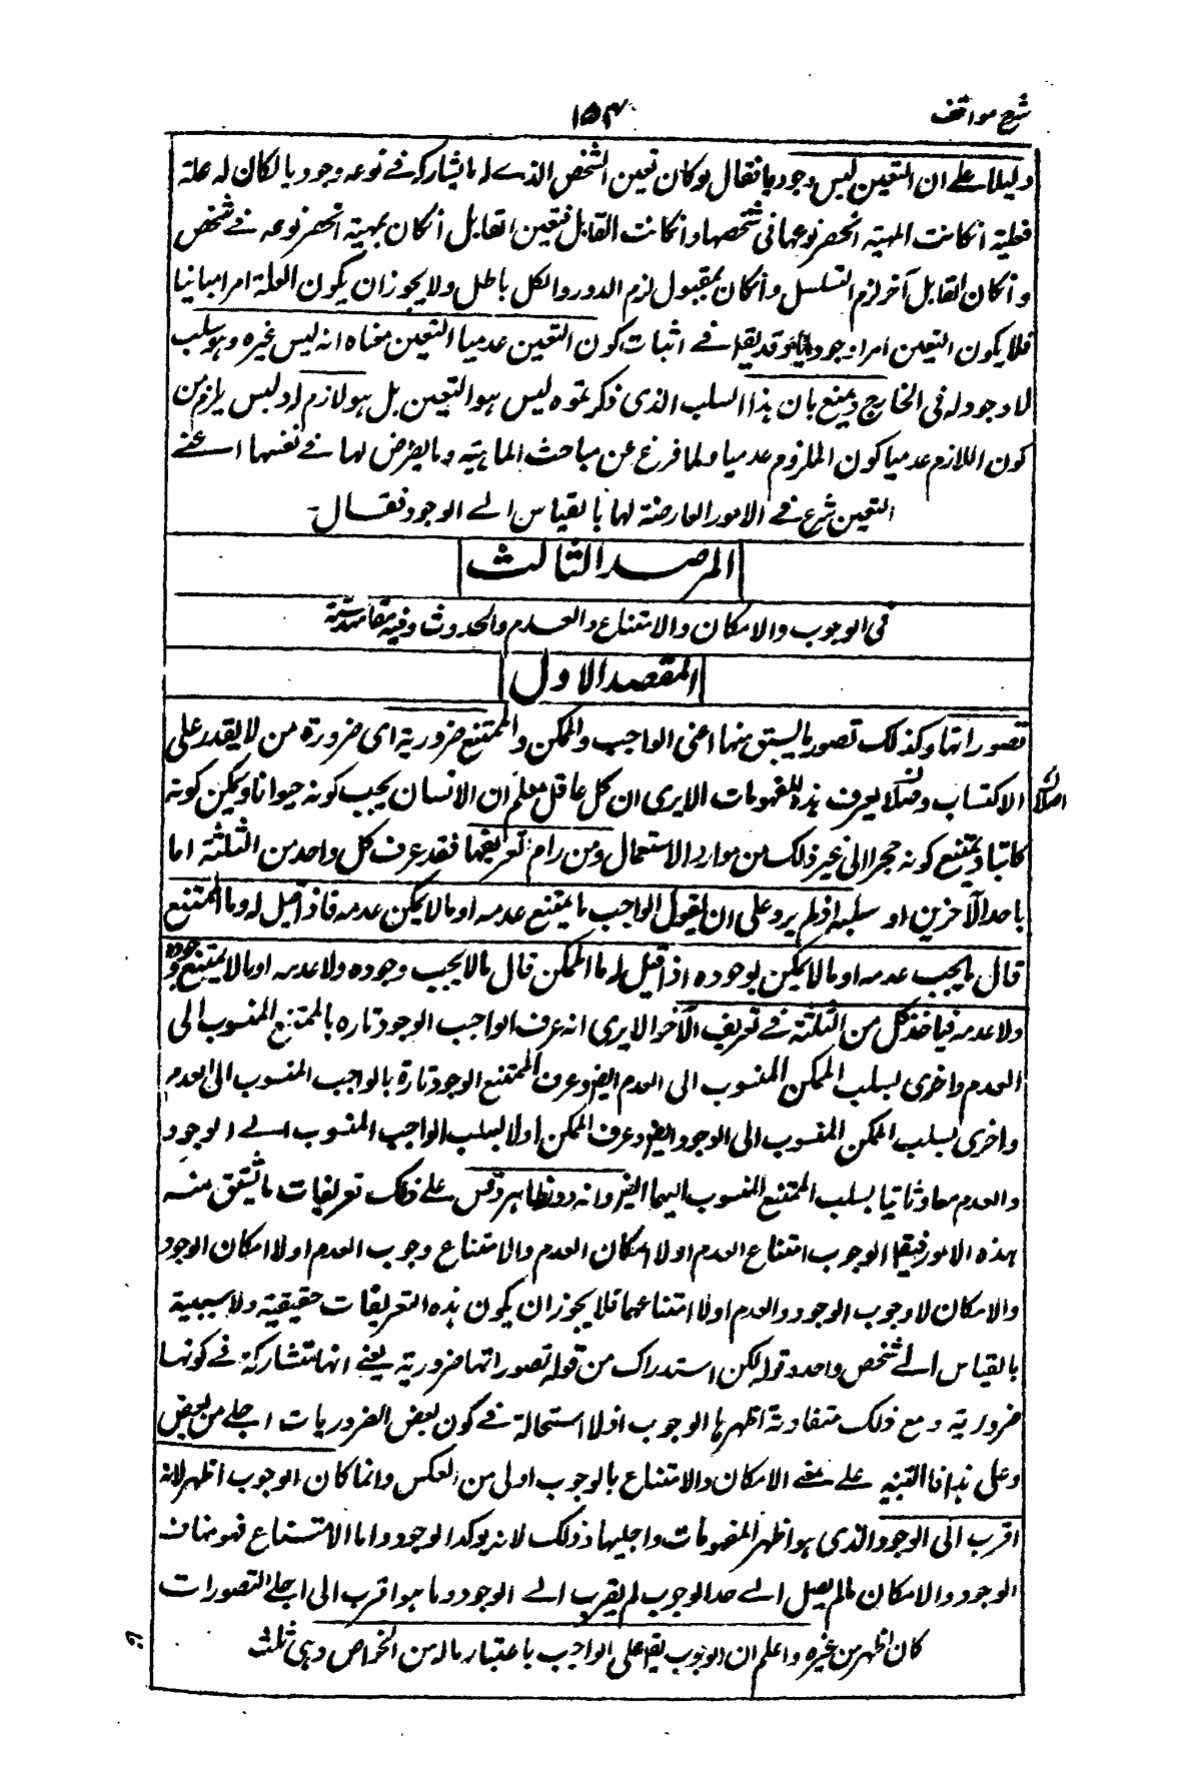 شرح مواقف
١٥٤
دليلا على ان التعين ليس وجوديا فقال لو كان تعين الشخص الذے له ما يشاركه فے نوعه وجوديا لكان له علة
فعليته ان كانت المهية انحصر نوعها فى شخصها وان كانت القابل فتعين القابل ان كان بمهيته انحصر نوعه فے شخص
وان كان القابل آخر لزم التسلسل وان كان بمقبول لزم الدور والكل باطل ولا يجوز ان يكون العلة امرا مباينا
فلا يكون التعين امرا وجوديا وقد يقا فے اثبات كون التعين عدميا التعين معناه انه ليس غيره وهو سلب
لا وجود له فى الخارج ويمنع بان هذا السلب الذى ذكرتموه ليس هو التعين بل هو لازم له وليس يلزم من
كون اللازم عدميا كون الملزوم عدميا ولما فرغ عن مباحث الماهية وما يعرض لها فے نفسها اعنے
التعين شرع فے الامور العارضة لها بالقياس الے الوجود فقال
المرصد الثالث
فى الوجوب والامكان والامتناع والعدم والحدوث وفيه مقاصد ستة
المقصد الاول
تصوراتها وكذلك تصور ما يشتق منها اعنى الواجب والممكن والممتنع ضرورية اى ضرورة من لا يقدر على
الاكتساب وفضلا يعرف هذه المفهومات الا يرى ان كل عاقل يعلم ان الانسان يجب كونه حيوانا ويمكن كونه
اصلا
كاتبا ويمتنع كونه حجرا الى غير ذلك من موارد الاستعمال ومن رام تعريفها فقد عرف كل واحد من الثلثة اما
باحد الآخرين او سلبه اذ لم يرد على ان يقول الواجب ما يمتنع عدمه او ما لا يمكن عدمه فاذا قيل له وما الممتنع
قال ما يجب عدمه او ما لا يمكن وجوده اذا قيل له ما الممكن قال ما لا يجب وجوده ولا عدمه او ما لا يمتنع وجوده
ولا عدمه فياخذ كل من الثلثة فے تعريف الآخر الا يرى انه عرف الواجب الوجود تارة بالممتنع المنسوب الى
العدم واخرى بسلب الممكن المنسوب الى العدم ايضا وعرف الممتنع الوجود تارة بالواجب المنسوب الى العدم
واخرى بسلب الممكن المنسوب الى الوجود ايضا وعرف الممكن اولا بسلب الواجب المنسوب الے الوجود
والعدم معا وثانيا بسلب الممتنع المنسوب اليهما ايضا وانه دور ظاهر وقس على ذلك تعريفات ما يشتق منه
هذه الامور فيقا الوجوب امتناع العدم او لا امكان العدم والامتناع وجوب العدم او لا امكان الوجود
والامكان لا وجوب الوجود والعدم او لا امتناعهما فلا يجوز ان يكون هذه التعريفات حقيقية ولا تنبيهية
بالقياس الے شخص واحد وقوله لكن استدراك من قوله تصوراتها ضرورية يعنے انها متشاركة فے كونها
ضرورية ومع ذلك متفاوتة اظهرها الوجوب اذ لا استحالة فے كون بعض الضروريات اجلے من بعض
وعلى هذا فالتنبيه علے معنے الامكان والامتناع بالوجوب اولى من العكس وانما كان الوجوب اظهر لانه
اقرب الى الوجود الذى هو اظهر المفهومات واجليها وذلك لانه يوكد الوجود واما الامتناع فهو مناف
الوجود والامكان ما لم يصل الے حد الوجوب لم يقرب الے الوجود وما هو اقرب الى اجلے التصورات
كان اظهر من غيره واعلم ان الوجوب يقا على الواجب باعتبار ما له من الخواص وهى ثلث